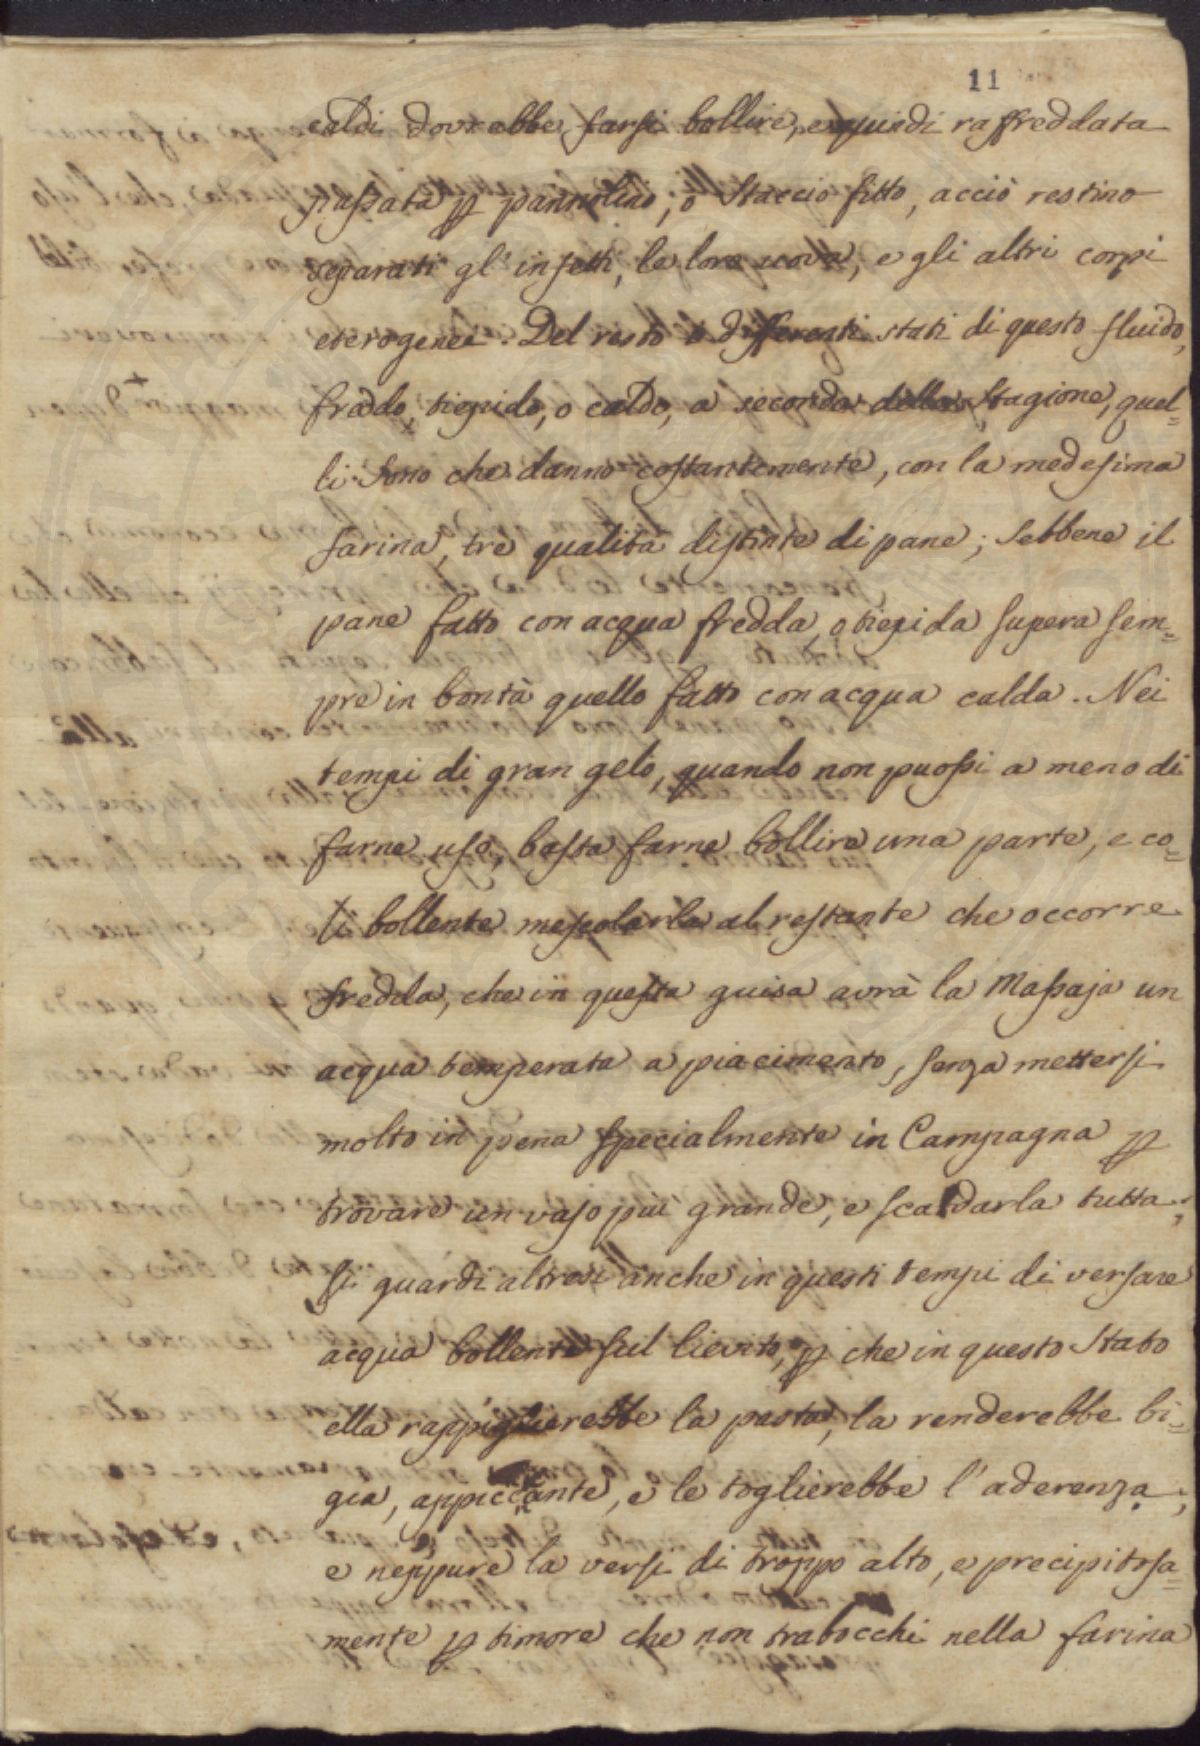 11
caldi dovrebbe farsi bollire, e quindi raffreddata
passata p pannolino, o Staccio fitto, acciò restino
separati gl'insetti, le loro uova, e gli altri corpi
eterogenei. Del resto i differenti stati di questo fluido,
freddo, tiepido, o caldo, a seconda della Stagione, quel=
li Sono che danno costantemente, con la medesima
farina, tre qualità distinte di pane; Sebbene il
pane fatto con acqua fredda, o tiepida supera sem=
pre in bontà quello fatto con acqua calda. Nei
tempi di gran gelo, quando non puossi a meno di
farne uso, basta farne bollire una parte, e co=
sì bollente mescolarla al restante che occorre
fredda, che in questa guisa avrà la Massaja un
acqua temperata a piacimento, senza mettersi
molto in pena specialmente in Campagna p
trovare un vaso più grande, e scaldarla tutta;
Si guardi altresì anche in questi tempi di versare
acqua bollente sul lievito, p che in questo Stato
ella rappiglierebbe la pasta, la renderebbe bi=
gia, appiccante, e le toglierebbe l'aderenza;
e neppure la versi di troppo alto, e precipitosa=
mente p timore che non trabocchi nella farina